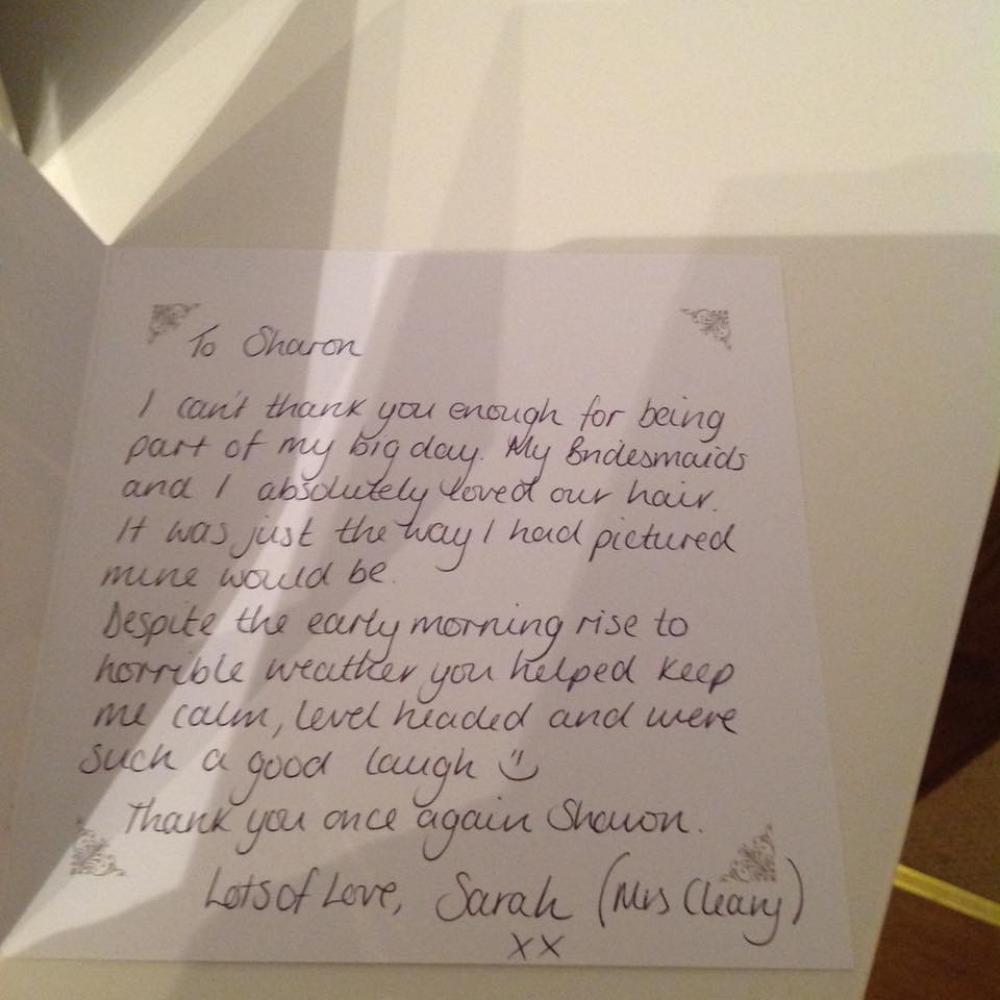 To Sharon
I can't thank you enough for being
part of my big day. My Bridesmaids
and I absolutely loved our hair.
It was just the way I had pictured
mine would be.
Despite the early morning rise to
horrible weather you helped keep
me calm, level headed and were
such a good laugh
Thank you once again Sharon.
Lots of Love, Sarah (Mrs Cleary)
xx